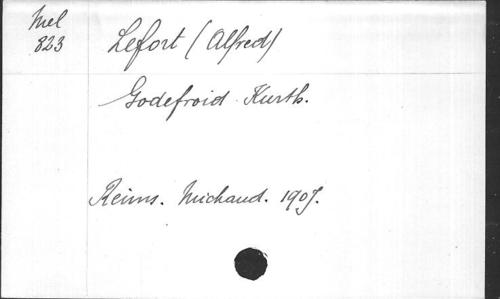 Mel
823
Lefort (Alfred)
Godefroid Kurth.
Reims. Michaud. 1907.